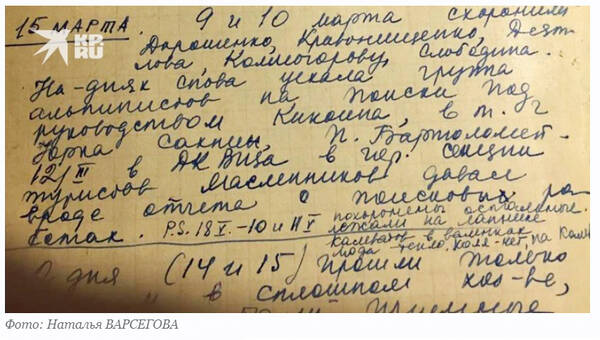 15 МАРТА. 9 и 10 марта схоронили
KP.RU
Дорошенко, Кривонищенко, Дят-
лова, Колмогорову, Слободина.
На-днях снова уехала группа
альпинистов на поиски под
руководством Кикоина, в т. ч
Юрка Сакнцы, П. Бартоломей.
12/III в ДК ВИЗа в гор. секции
туристов Масленников давал
вроде отчета о поисковых ра
ботах. P.S. 18 V. -10 и 11 V похоронены остальные.
лежали на лапнике
в валенках
2 дня (14 и 15) прошли только
" в сплошном хоз-ве,
приемные
Фото: Наталья ВАРСЕГОВА